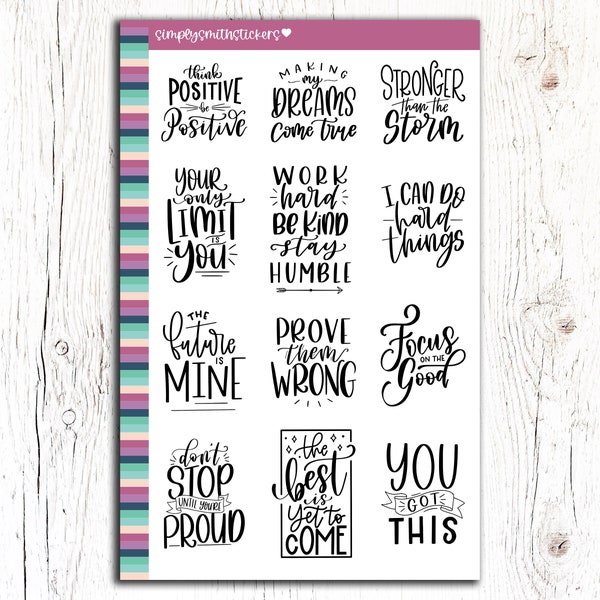 simplysmithstickers
think
POSITIVE
be
Positive
MAKING
my
DREAMS
come true
STRONGER
than the
Storm
YOUR
only
LIMIT
IS
YOU
WORK
hard
BE KIND
stay
HUMBLE
I CAN DO
hard
things
THE
future
IS
MINE
PROVE
them
WRONG
Focus
ON THE
Good
don't
STOP
UNTIL YOU'RE
PROUD
the
best
is
yet to
COME
YOU
GOT
THIS